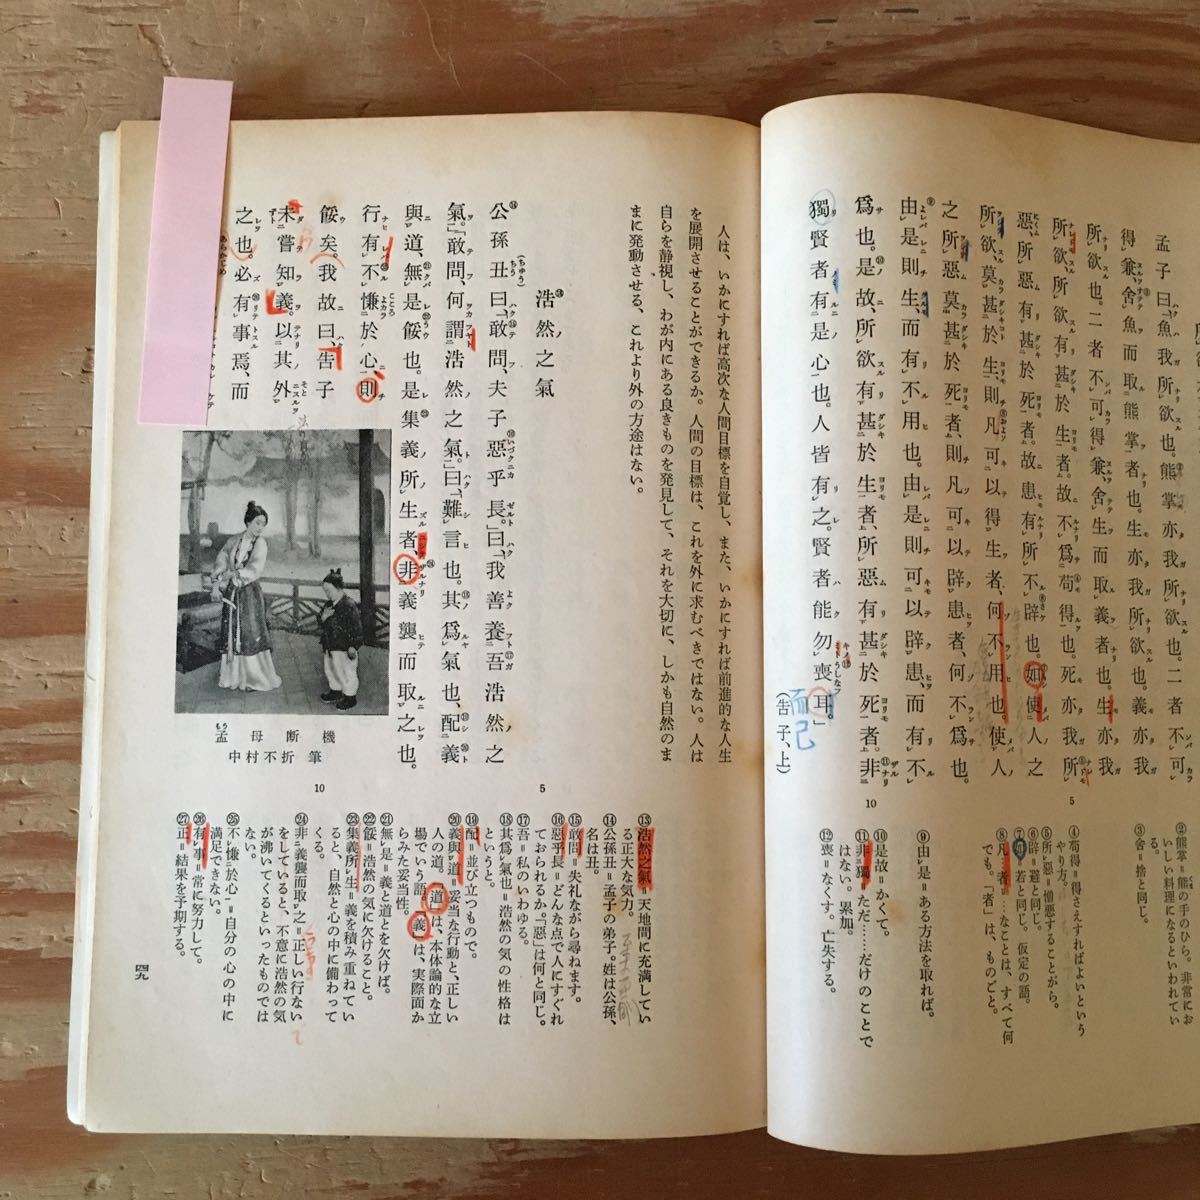 孟子曰、魚我所欲也。熊掌亦我所欲也。二者不可
得兼、舍魚而取熊掌者也。生亦我所欲也。義亦我
所欲也。二者不可得兼、舍生而取義者也。生亦我
所欲、所欲有甚於生者。故不爲苟得也。死亦我所
惡、所惡有甚於死者。故患有所不辟也。如使人之
所欲莫甚於生、則凡可以得生者、何不用也。使人
之所惡莫甚於死者、則凡可以辟患者、何不爲也。
由是則生、而有不用也。由是則可以辟患、而有不
爲也。是故、所欲有甚於生者、所惡有甚於死者。非
獨賢者有是心也。人皆有之。賢者能勿喪耳。」
而已
(告子、上)
5
10
②熊掌＝熊の手のひら。非常においしい料理になるといわれている。
③舍＝捨と同じ。
④苟得＝得さえすればよいというやり方。
⑤所惡＝憎悪することがら。
⑥辟＝避と同じ。
⑦如＝若と同じ。仮定の語。
⑧凡…者＝…なことは、すべて何でも。「者」は、ものごと。
⑨由是＝ある方法を取れば。
⑩是故＝かくて。
⑪非獨＝ただ……だけのことではない。累加。
⑫喪＝なくす。亡失する。
人は、いかにすれば高次な人間目標を自覚し、また、いかにすれば前進的な人生
を展開させることができるか。人間の目標は、これを外に求むべきではない。人は
自らを静視し、わが内にある良きものを発見して、それを大切に、しかも自然のま
まに発動させる、これより外の方途はない。
⑬浩然之氣
⑭公孫丑曰、敢問、夫子惡乎長。」曰、「我善養吾浩然之
氣。」「敢問、何謂浩然之氣。」曰、「難言也。其爲氣也、配義
與道、無是餒也。是集義所生者、非義襲而取之也。
行有不慊於心、則
餒矣。我故曰、告子
未嘗知義。以其外
之也。必有事焉、而
孟母断機
中村不折 筆
5
10
⑬浩然之氣＝天地間に充満している正大な気力。
⑭公孫丑＝孟子の弟子。姓は公孫、名は丑。
⑮敢問＝失礼ながら尋ねます。
⑯惡乎長＝どんな点で人にすぐれておられるか。「惡」は何と同じ。
⑰吾＝私のいわゆる。
⑱其爲氣也＝浩然の気の性格はというと。
⑲配＝並び立つもので。
⑳義與道＝妥当な行動と、正しい人の道。「道」は、本体論的な立場でいう語。「義」は、実際面からみた妥当性。
㉑無是＝義と道とを欠けば。
㉒餒＝浩然の気に欠けること。
㉓集義所生＝義を積み重ねていると、自然と心の中に備わってくる。
㉔非義襲而取之＝正しい行ないをしていると、不意に浩然の気が沸いてくるといったものではない。
㉕不慊於心＝自分の心の中に満足できない。
㉖有事＝常に努力して。
㉗正＝結果を予期する。
四九